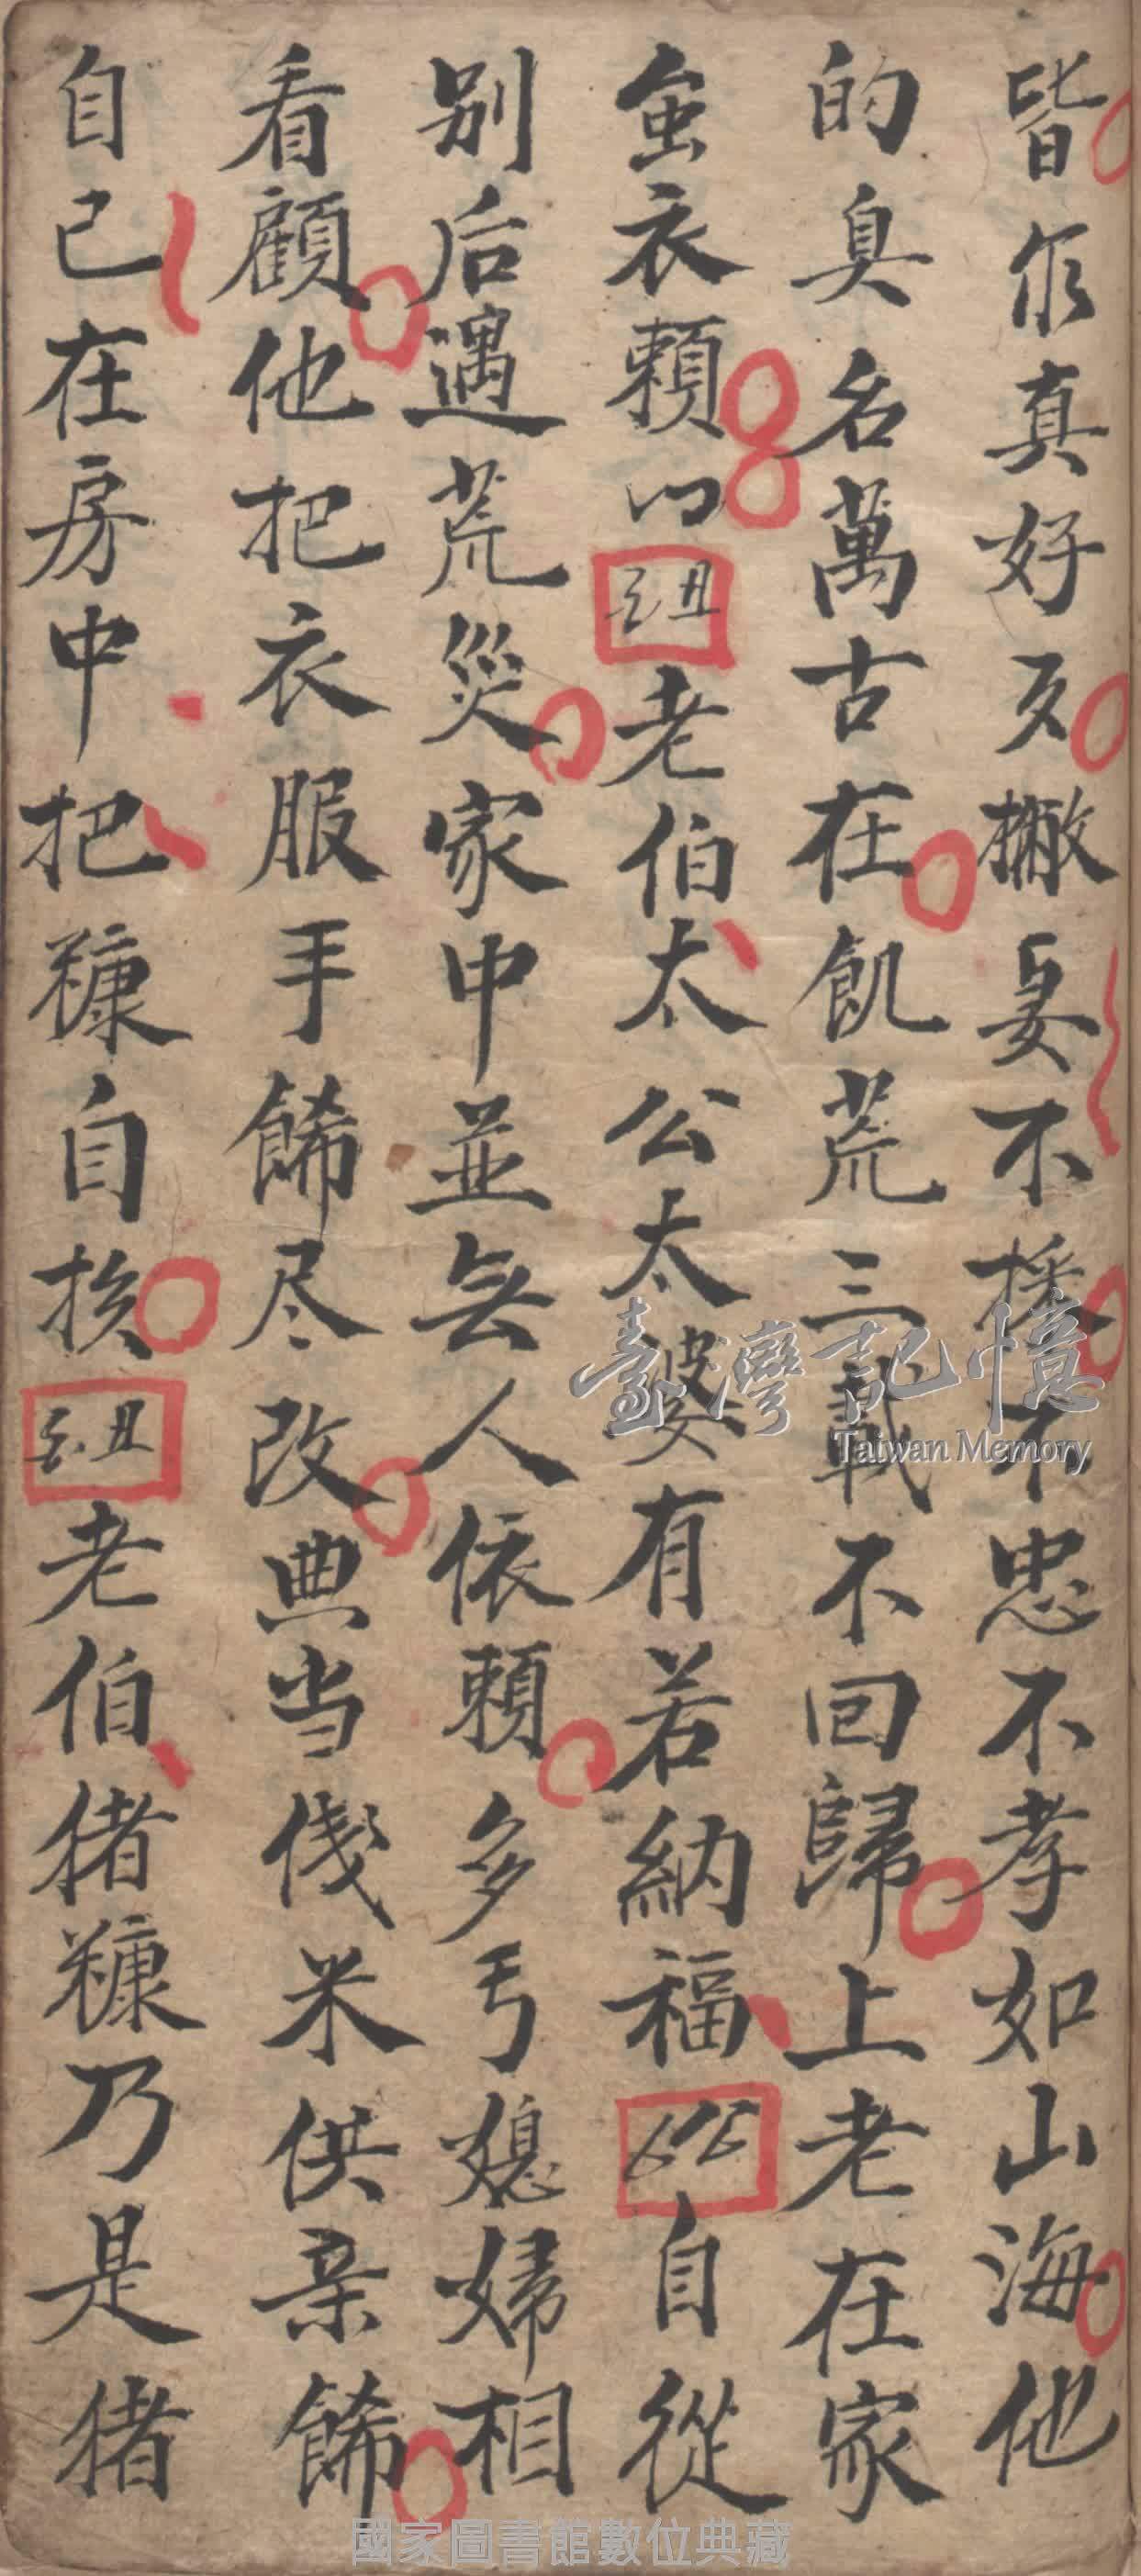 皆尔真好歹撇妻不採不忠不孝如山海他
的臭名萬古在飢荒三載不回歸上老在家
衣賴以丑老伯太公太婆有若納福公自從
别后遇荒災家中並无人依賴多亏媳婦相
看顧他把衣服手餙尽改典当伐米供亲餙
自己在房中把糠自挨丑老伯猪糠乃是猪
臺灣記憶
Taiwan Memory
國家圖書館數位典藏